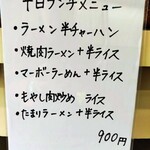 平日ランチメニュー
・ラーメン 半チャーハン
・焼肉ラーメン + 半ライス
・マーボーらーめん + 半ライス
・もやし肉炒め ライス
・たまりラーメン + 半ライス
900円